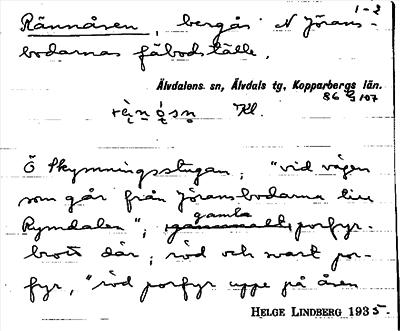 1-2
Rännåsen, bergås N Jörans-
bodarnas fäbodställe.
Älvdalens sn, Älvdals tg, Kopparbergs län.
86 G 107
Kl.
Ö Skymningsstugan; "vid vägen
som går från Jöransbodarna till
Rymdalen"; gamla porfyr-
brott där; röd och svart por-
fyr, "röd porfyr uppe på åsen
HELGE LINDBERG 1935.